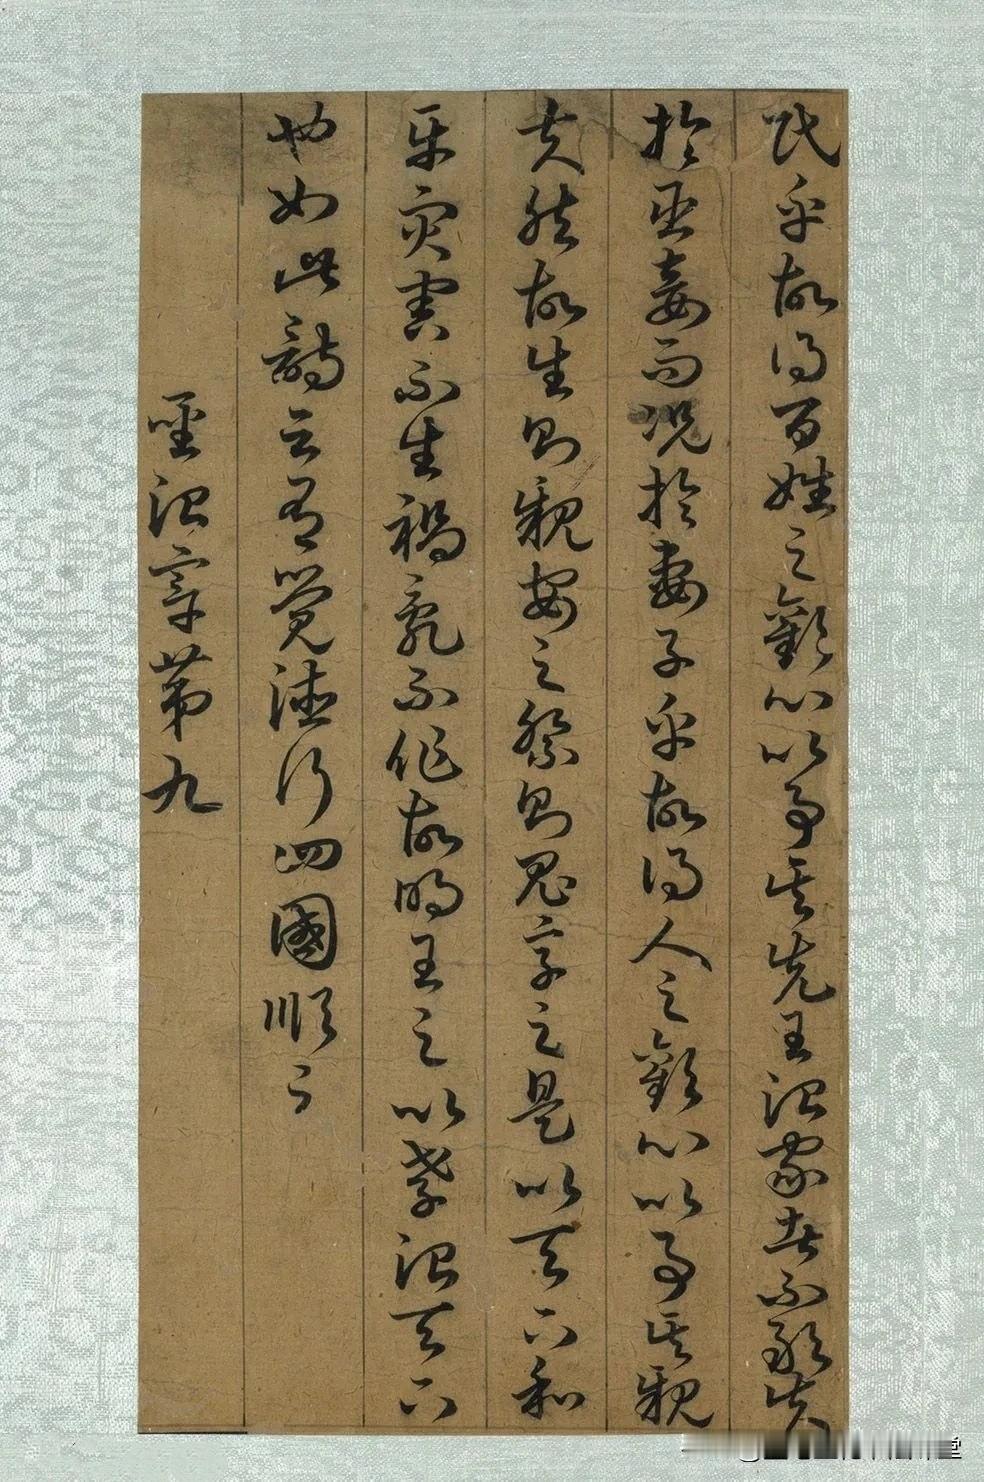 民乎故得百姓之歡心以事其先王治家者不敢失
於臣妾而況於妻子乎故得人之歡心以事其親
夫然故生則親安之祭則鬼享之是以天下和
平災害不生禍亂不作故明王之以孝治天下
也如此詩云有覺德行四國順之
聖治章第九